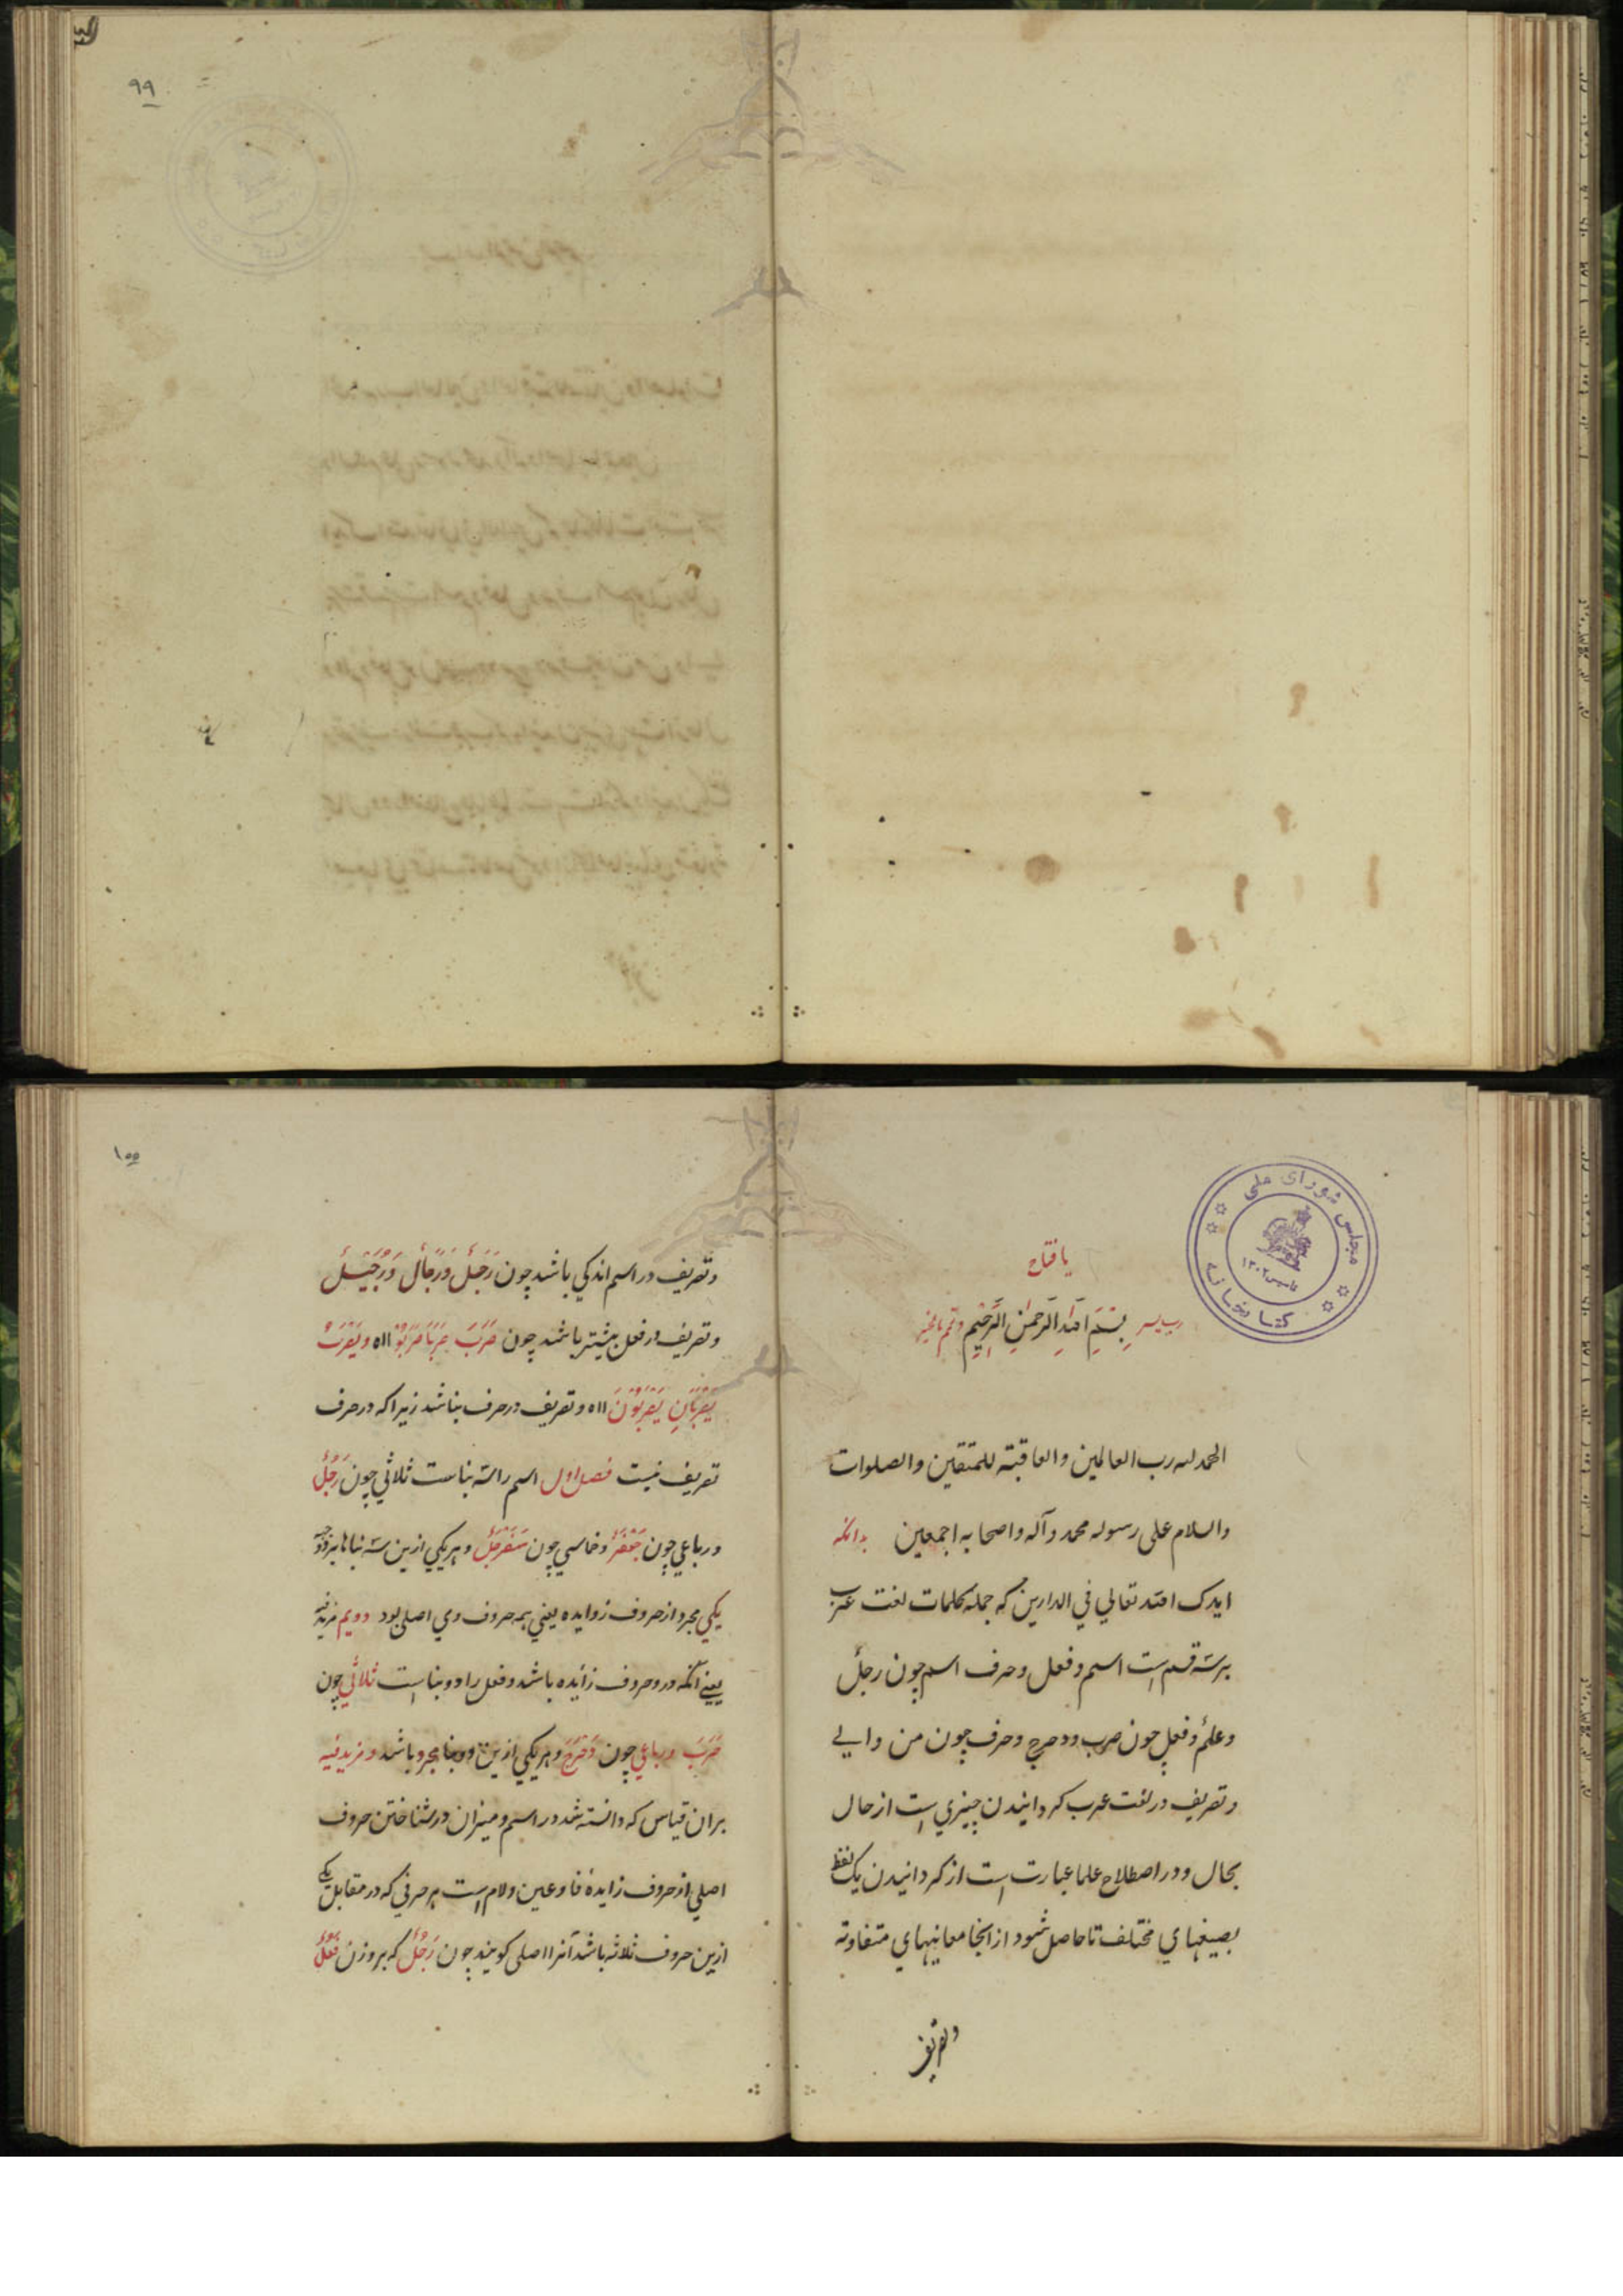 ٩٩
مجلس شورای ملی
تاسیس ١٣٠٢
کتابخانه
یا فتاح
رب یسر بسم الله الرحمن الرحیم وتمم بالخیر
الحمد لله رب العالمین والعاقبة للمتقین والصلوات
والسلام علی رسوله محمد وآله واصحابه اجمعین بدانکه
ایدک الله تعالی فی الدارین که جمله کلمات لغت عرب
برسه قسم است اسم وفعل وحرف اسم چون رجلٌ
وعلمٌ وفعل چون ضرب ودحرج وحرف چون من والی
وتصریف در لغت عرب کردانیدن چیزی است از حال
بحال ودر اصطلاح علما عبارت است از کردانیدن یک لفظ
بصیغهای مختلف تا حاصل شود از انجا معانیهای متفاوته
وتصریف
١٠٠
وتصریف در اسم اندکی باشد چون رَجُلٌ وَرِجَالٌ وَرُجَیْلٌ
وتصریف در فعل بیشتر باشد چون ضَرَبَ ضَرَبَا ضَرَبُوْا الاه ویَضْرِبُ
یَضْرِبَانِ یَضْرِبُوْنَ الاه وتصریف در حرف نباشد زیرا که در حرف
تصریف نیست فصل اول اسم را سه بناست ثلاثی چون رَجُلٌ
ورباعی چون جَعْفَرٌ وخماسی چون سَفَرْجَلٌ وهریکی ازین سه بناها بر دو وجه
یکی مجرد از حروف زوایده یعنی همه حروف وی اصلی بود دویم مزید فیه
یعنی آنکه در وحروف زایده باشد وفعل را دو بنا است ثلاثی چون
ضَرَبَ ورباعی چون دَحْرَجَ وهریکی ازین دو بنا مجرد باشد ومزید فیه
بران قیاس که دانسته شد در اسم ومیزان در شناختن حروف
اصلی از حروف زایده فا وعین ولام است هر حرفی که در مقابل یکی
ازین حروف ثلاثه باشد آنرا اصلی کویند چون رَجُلٌ که بر وزن فَعُلٌ